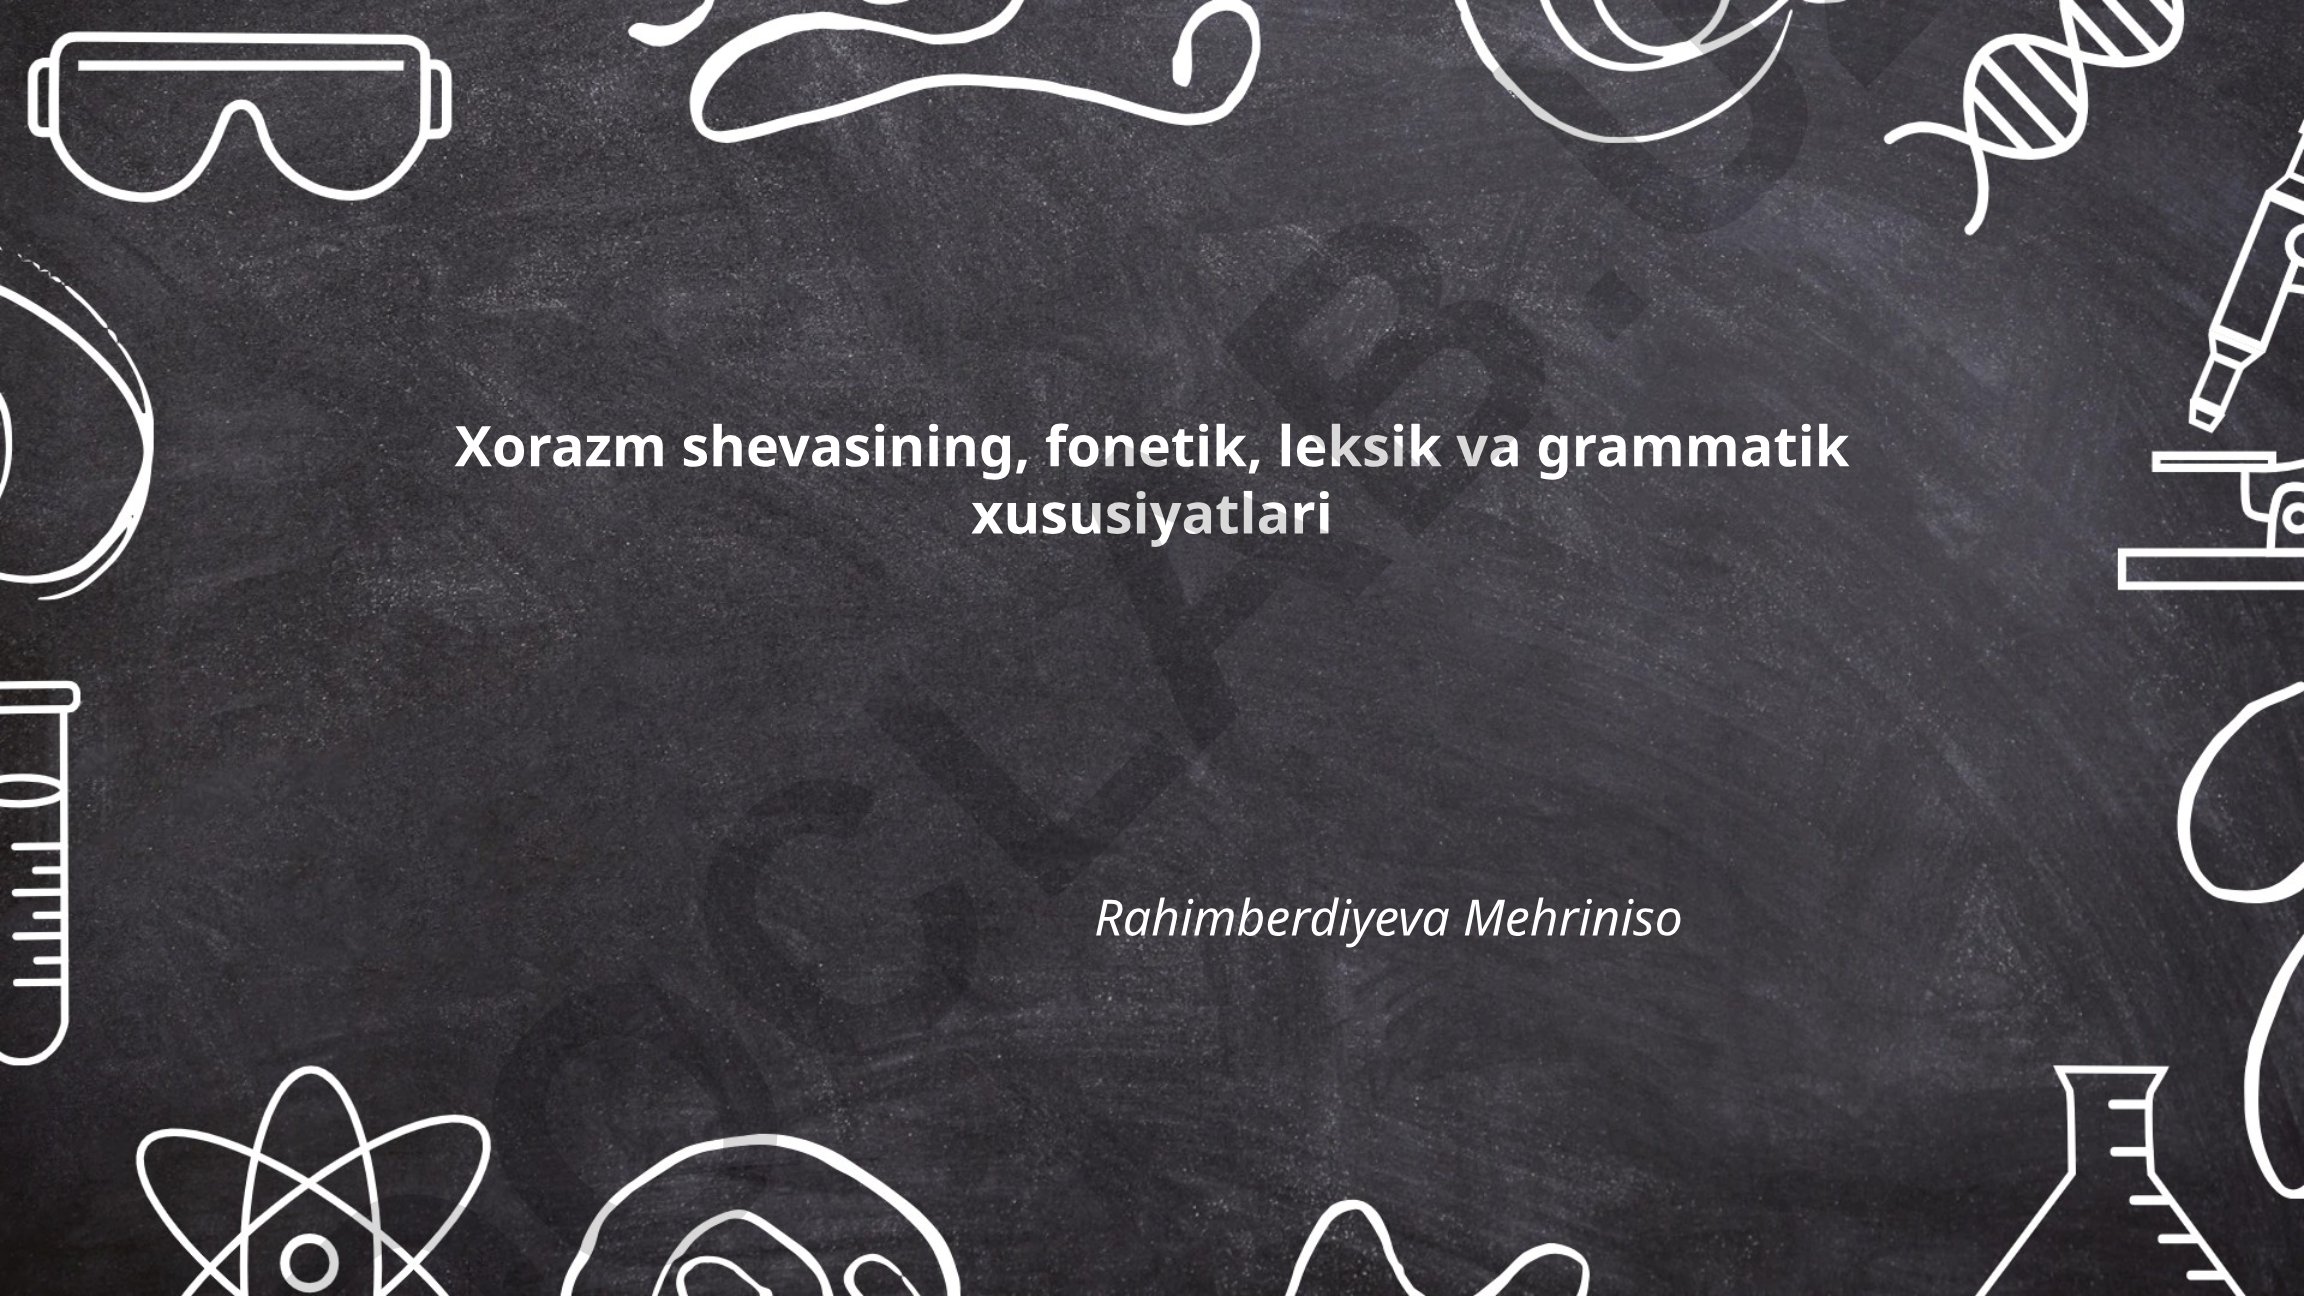 Xorazm shevasining, fonetik, leksik va grammatik
xususiyatlari
Rahimberdiyeva Mehriniso